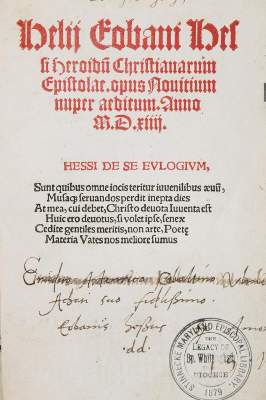 Helij Eobani Hes
si Heroidū Christianarum
Epistolae. opus Novitium
nuper aeditum. Anno
M.D.xiiij.
HESSI DE SE EVLOGIVM,
Sunt quibus omne iocis teritur iuvenilibus æuū,
Musaq; seruandos perdit inepta dies
At mea, cui debet, Christo deuota Iuuenta est
Huic ero deuotus, si volet ipse, senex
Cedite gentiles meritis, non arte, Poetę
Materia Vates nos meliore sumus
suo
Eobanus Hessus
.dd.
STINNECKE MARYLAND EPISCOPAL LIBRARY
THE
LEGACY OF
Bp. Whittingham
TO
DIOCESE
1879